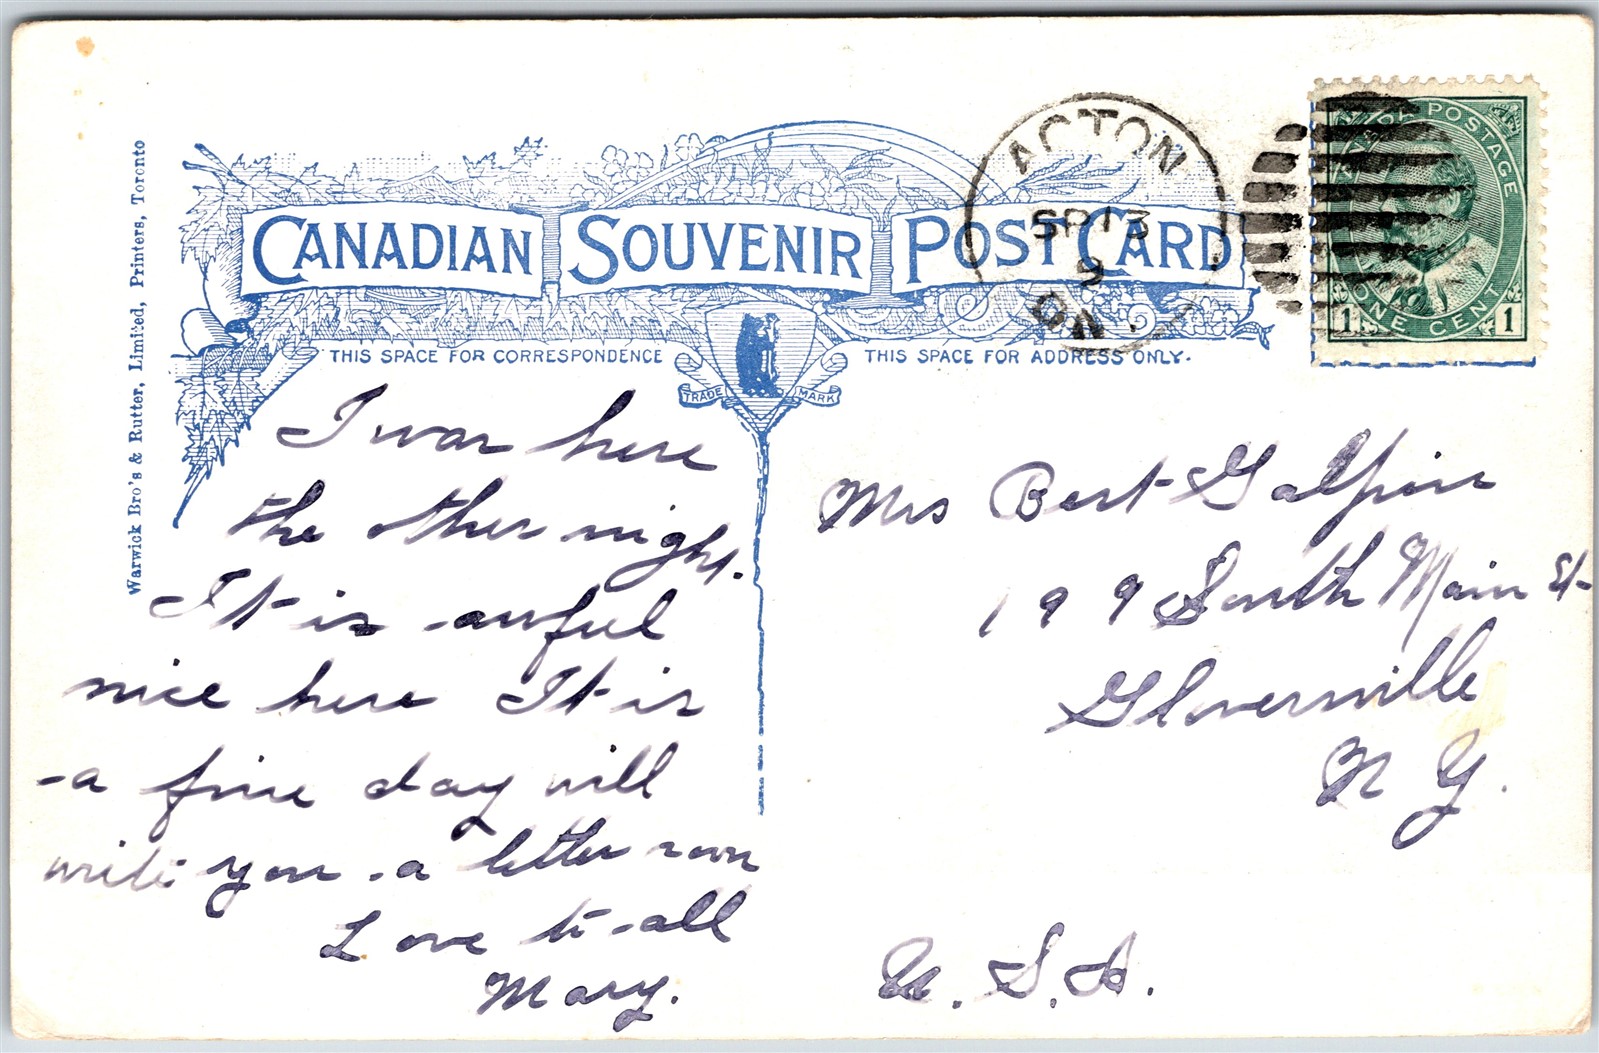 Warwick Bro's & Rutter, Limited, Printers, Toronto
CANADIAN SOUVENIR POST CARD
ACTON
SP 13
9
ON
POSTAGE
ONE CENT
1 1
THIS SPACE FOR CORRESPONDENCE
THIS SPACE FOR ADDRESS ONLY.
TRADE MARK
I was here
the other night.
It is awful
nice here It is
a fine day will
write you a letter soon
Love to all
Mary.
Mrs Bert Galpin
199 South Main St
Gloversville
N Y.
U.S.A.